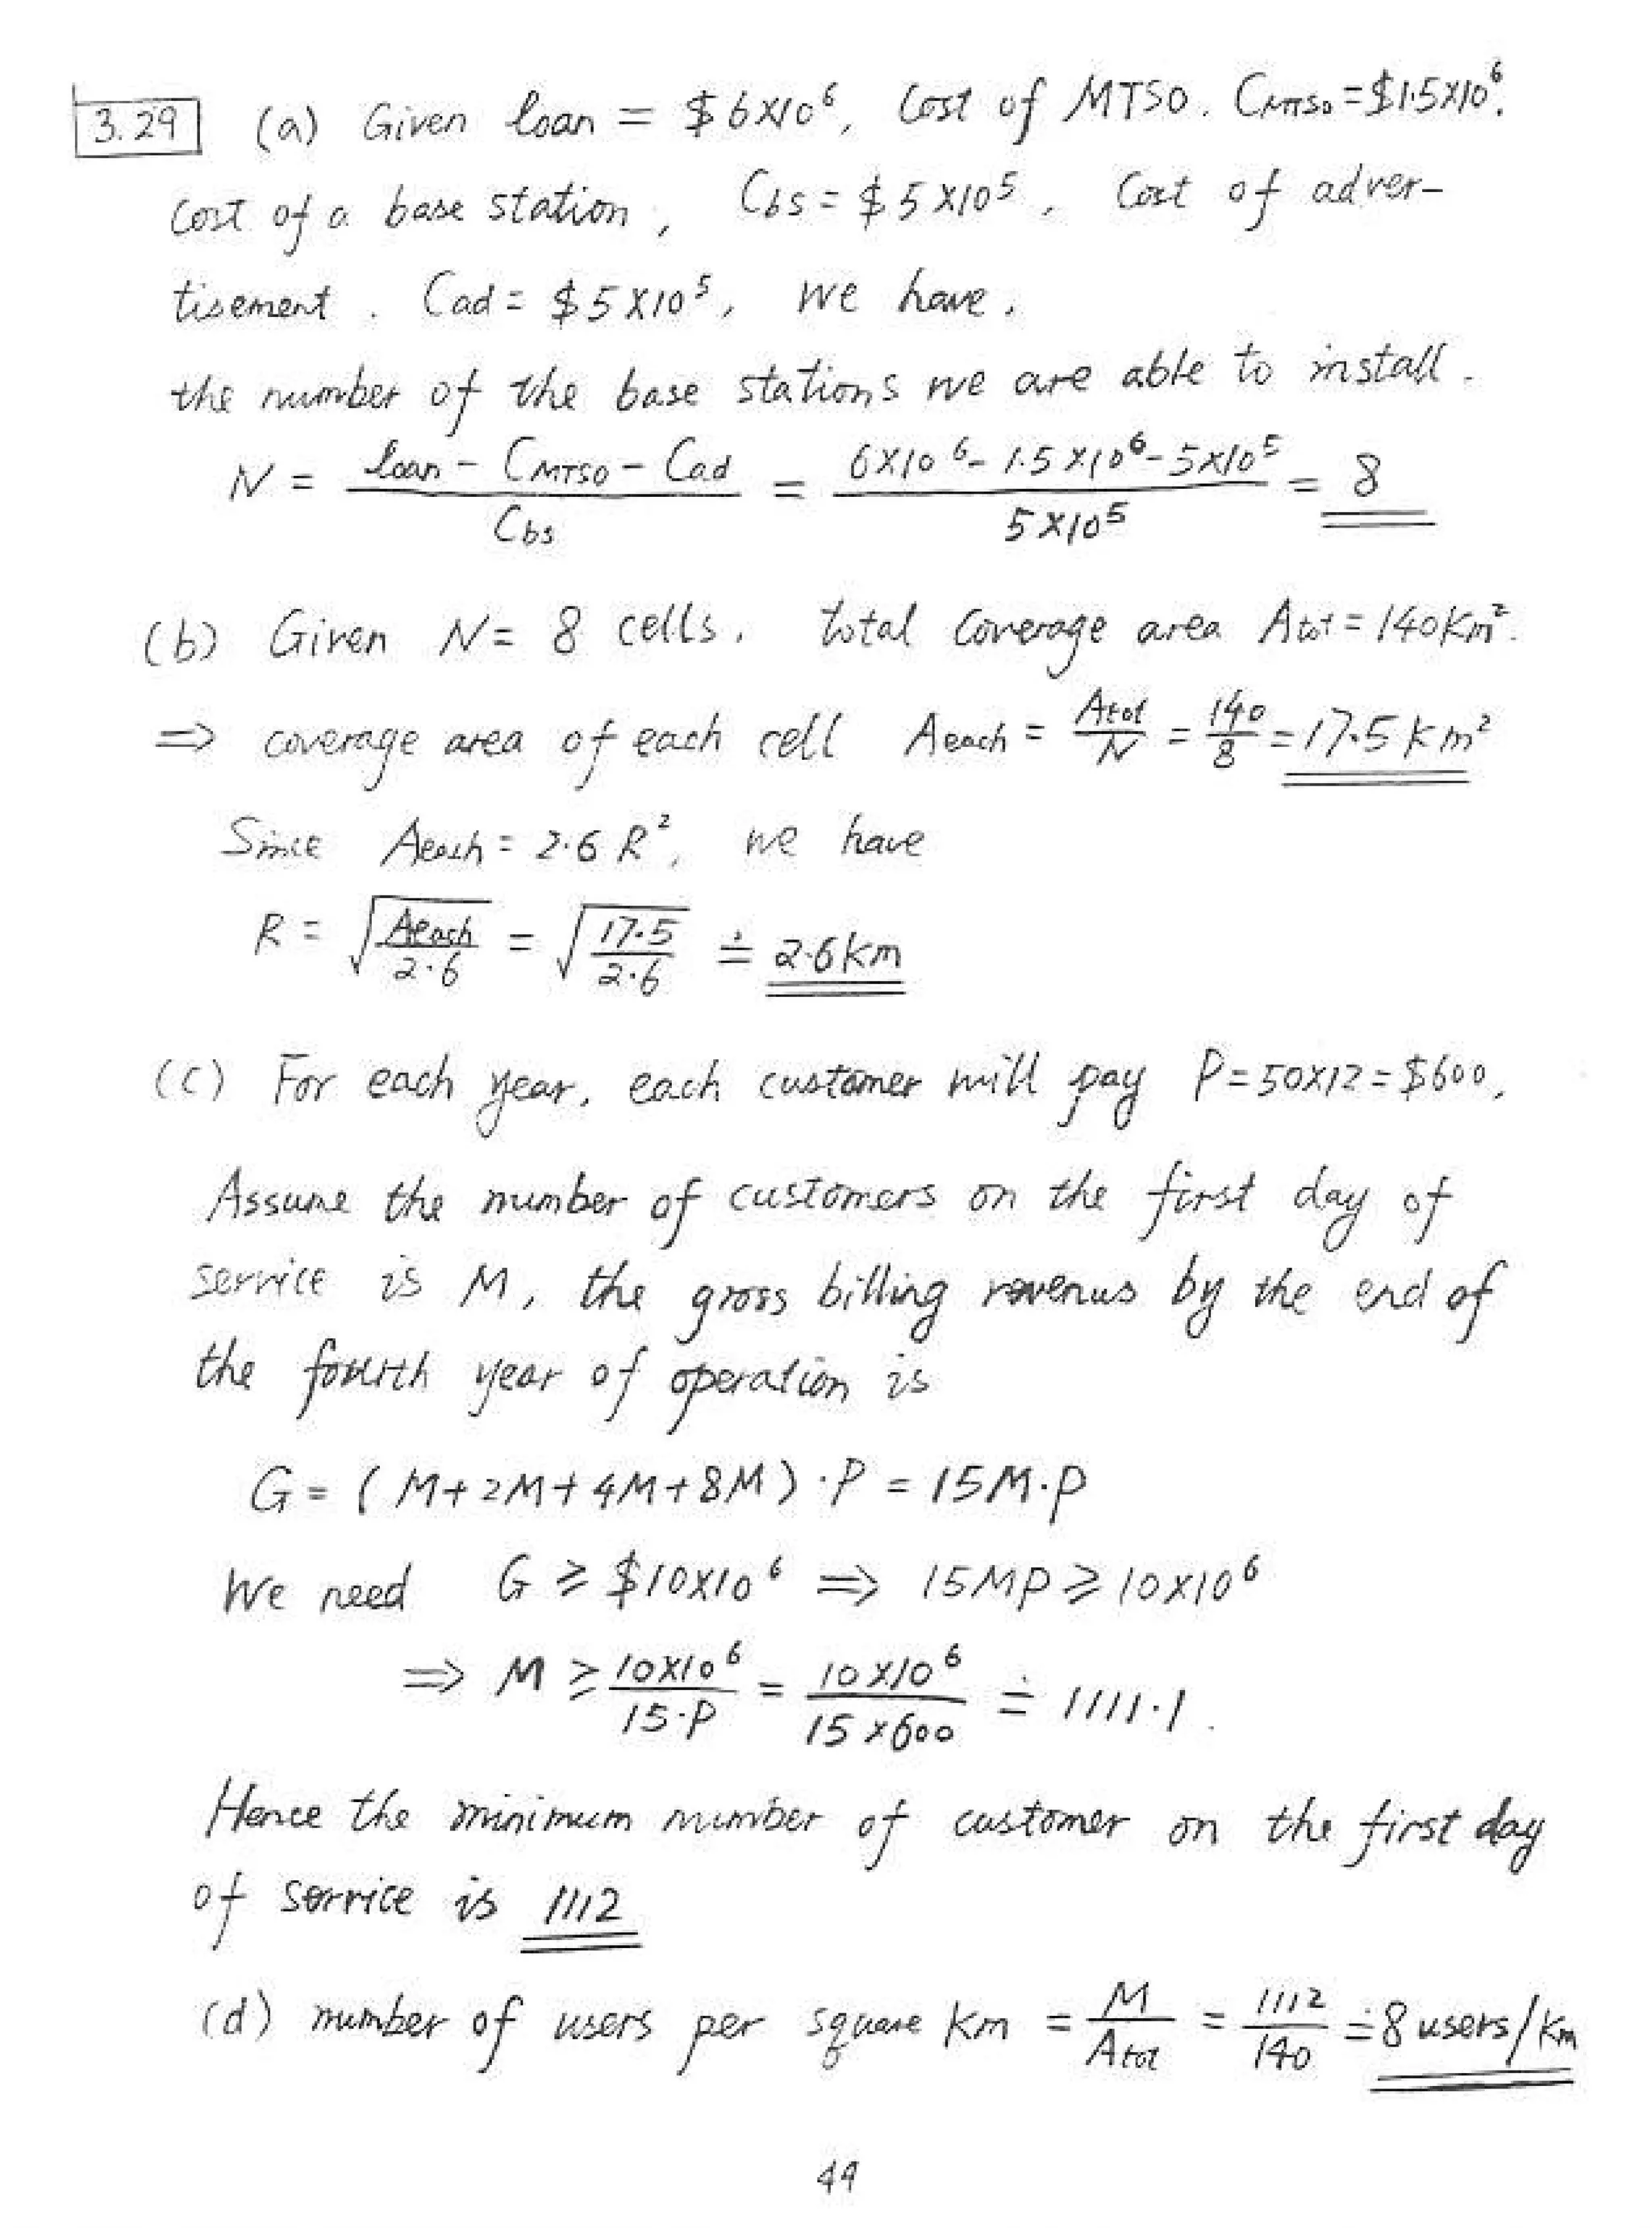 3.29 (a) Given loan = $6×10⁶, Cost of MTSO. C_MTSO = $1.5×10⁶.
cost of a base station, Cbs = $5×10⁵, Cost of adver-
tisement. Cad = $5×10⁵, we have,
the number of the base stations we are able to install.
N = (loan - C_MTSO - Cad) / Cbs = (6×10⁶ - 1.5×10⁶ - 5×10⁵) / (5×10⁵) = 8
(b) Given N = 8 cells, total coverage area Atot = 140 Km².
⇒ coverage area of each cell Aeach = Atot / N = 140 / 8 = 17.5 km²
Since Aeach = 2.6 R², we have
R = √(Aeach / 2.6) = √(17.5 / 2.6) ≐ 2.6 km
(c) For each year, each customer will pay P = 50×12 = $600,
Assume the number of customers on the first day of
service is M, the gross billing revenus by the end of
the fourth year of operation is
G = (M + 2M + 4M + 8M)·P = 15M·P
We need G ≥ $10×10⁶ ⇒ 15MP ≥ 10×10⁶
⇒ M ≥ 10×10⁶ / 15·P = 10×10⁶ / 15×600 ≐ 1111.1.
Hence the minimum number of customer on the first day
of service is 1112
(d) number of users per square Km = M / Atot = 1112 / 140 ≐ 8 users/Km
49